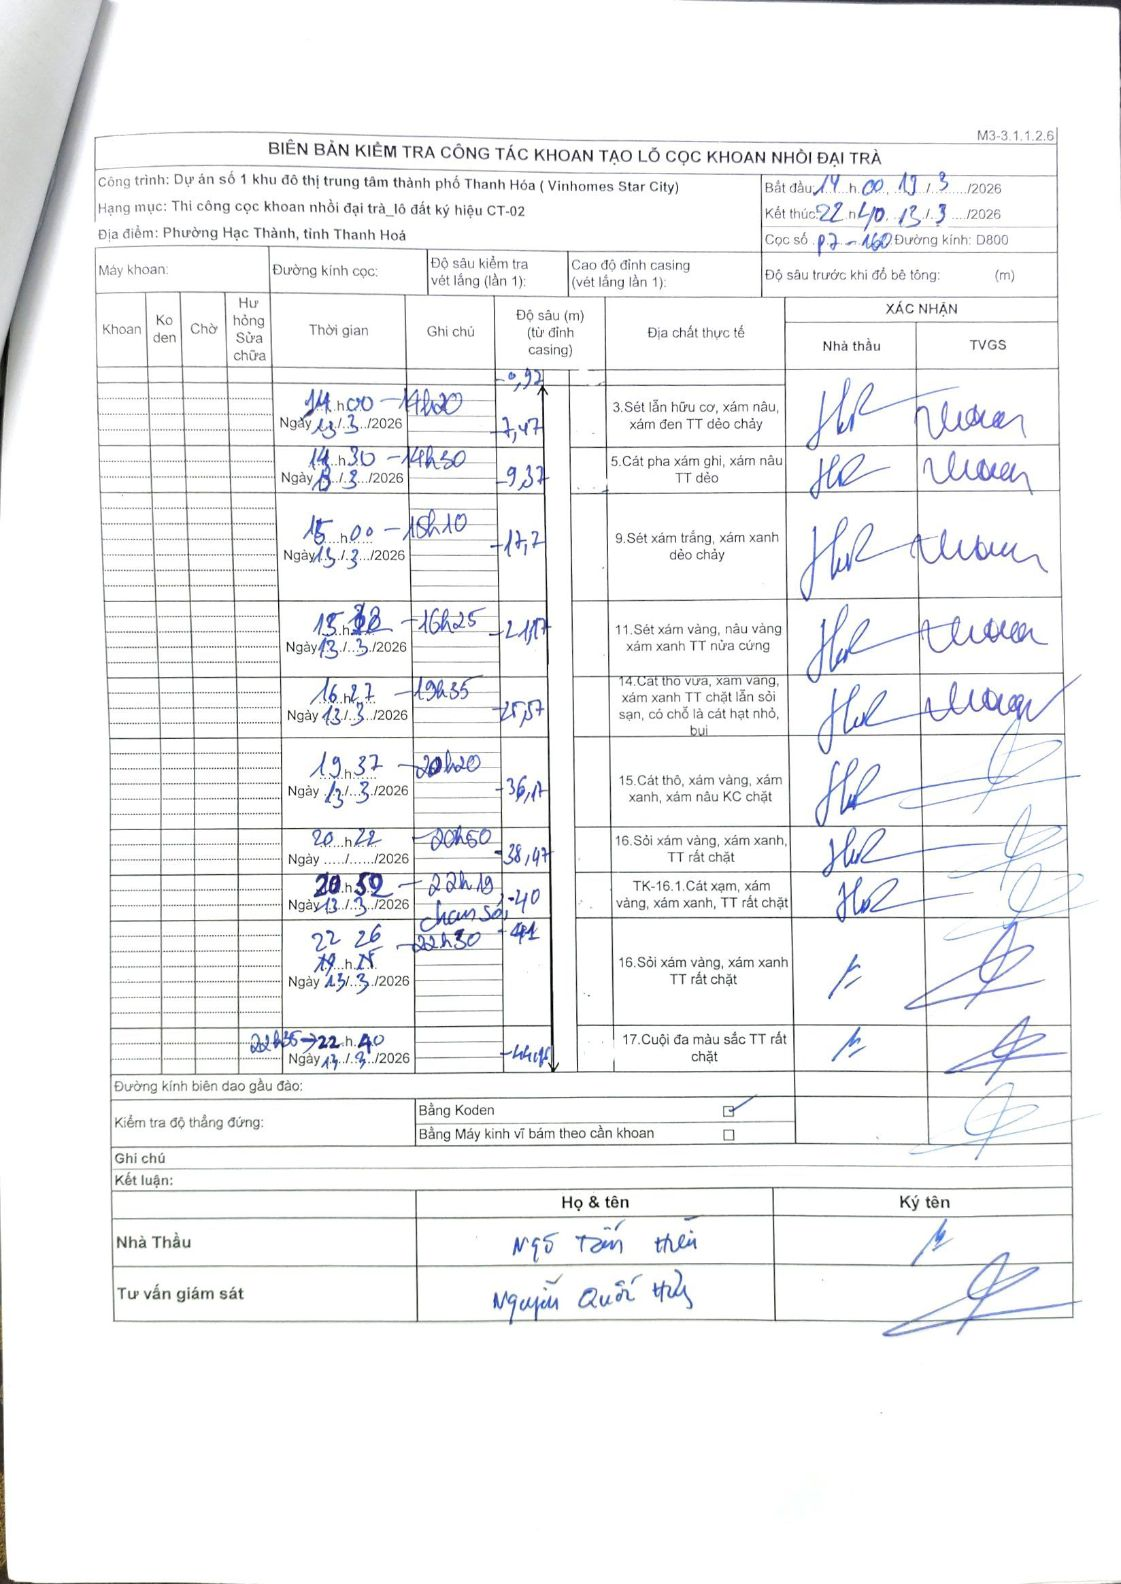 M3-3.1.1.2.6
BIÊN BẢN KIỂM TRA CÔNG TÁC KHOAN TẠO LỖ CỌC KHOAN NHỒI ĐẠI TRÀ
Công trình: Dự án số 1 khu đô thị trung tâm thành phố Thanh Hóa ( Vinhomes Star City)
Hạng mục: Thi công cọc khoan nhồi đại trà_lô đất ký hiệu CT-02
Địa điểm: Phường Hạc Thành, tỉnh Thanh Hoá
Bắt đầu: 14 h 00, 13 / 3 /2026
Kết thúc: 22 h 40, 13 / 3 /2026
Cọc số P7-160 Đường kính: D800
Máy khoan:
Đường kính cọc:
Độ sâu kiểm tra vét lắng (lần 1):
Cao độ đỉnh casing (vét lắng lần 1):
Độ sâu trước khi đổ bê tông: (m)
Khoan
Ko den
Chờ
Hư hỏng Sửa chữa
Thời gian
Ghi chú
Độ sâu (m) (từ đỉnh casing)
Địa chất thực tế
XÁC NHẬN
Nhà thầu
TVGS
-0,92
14 h 00 - 14h20
Ngày 13 / 3 /2026
-7,47
3.Sét lẫn hữu cơ, xám nâu, xám đen TT dẻo chảy
14 h 30 - 14h50
Ngày 13 / 3 /2026
-9,37
5.Cát pha xám ghi, xám nâu TT dẻo
15 h 00 - 15h10
Ngày 13 / 3 /2026
-17,7
9.Sét xám trắng, xám xanh dẻo chảy
15 h - 16h25
Ngày 13 / 3 /2026
-21,17
11.Sét xám vàng, nâu vàng xám xanh TT nửa cứng
16 h 27 - 19h35
Ngày 13 / 3 /2026
-25,57
14.Cát thô vừa, xám vàng, xám xanh TT chặt lẫn sỏi sạn, có chỗ là cát hạt nhỏ, bụi
19 h 37 - 20h20
Ngày 13 / 3 /2026
-36,17
15.Cát thô, xám vàng, xám xanh, xám nâu KC chặt
20 h 22 - 20h50
Ngày ...../....../2026
-38,47
16.Sỏi xám vàng, xám xanh, TT rất chặt
20 h 52 - 22h19
Ngày 13 / 3 /2026
-40
TK-16.1.Cát xạm, xám vàng, xám xanh, TT rất chặt
-41
22 26 - 22h30
Ngày 13 / 3 /2026
16.Sỏi xám vàng, xám xanh TT rất chặt
22h35 → 22 h 40
Ngày 13 / 3 /2026
17.Cuội đa màu sắc TT rất chặt
Đường kính biên dao gầu đào:
Kiểm tra độ thẳng đứng:
Bằng Koden
Bằng Máy kinh vĩ bám theo cần khoan
Ghi chú
Kết luận:
Họ & tên
Ký tên
Nhà Thầu
Ngô Tấn Hiển
Tư vấn giám sát
Nguyễn Quốc